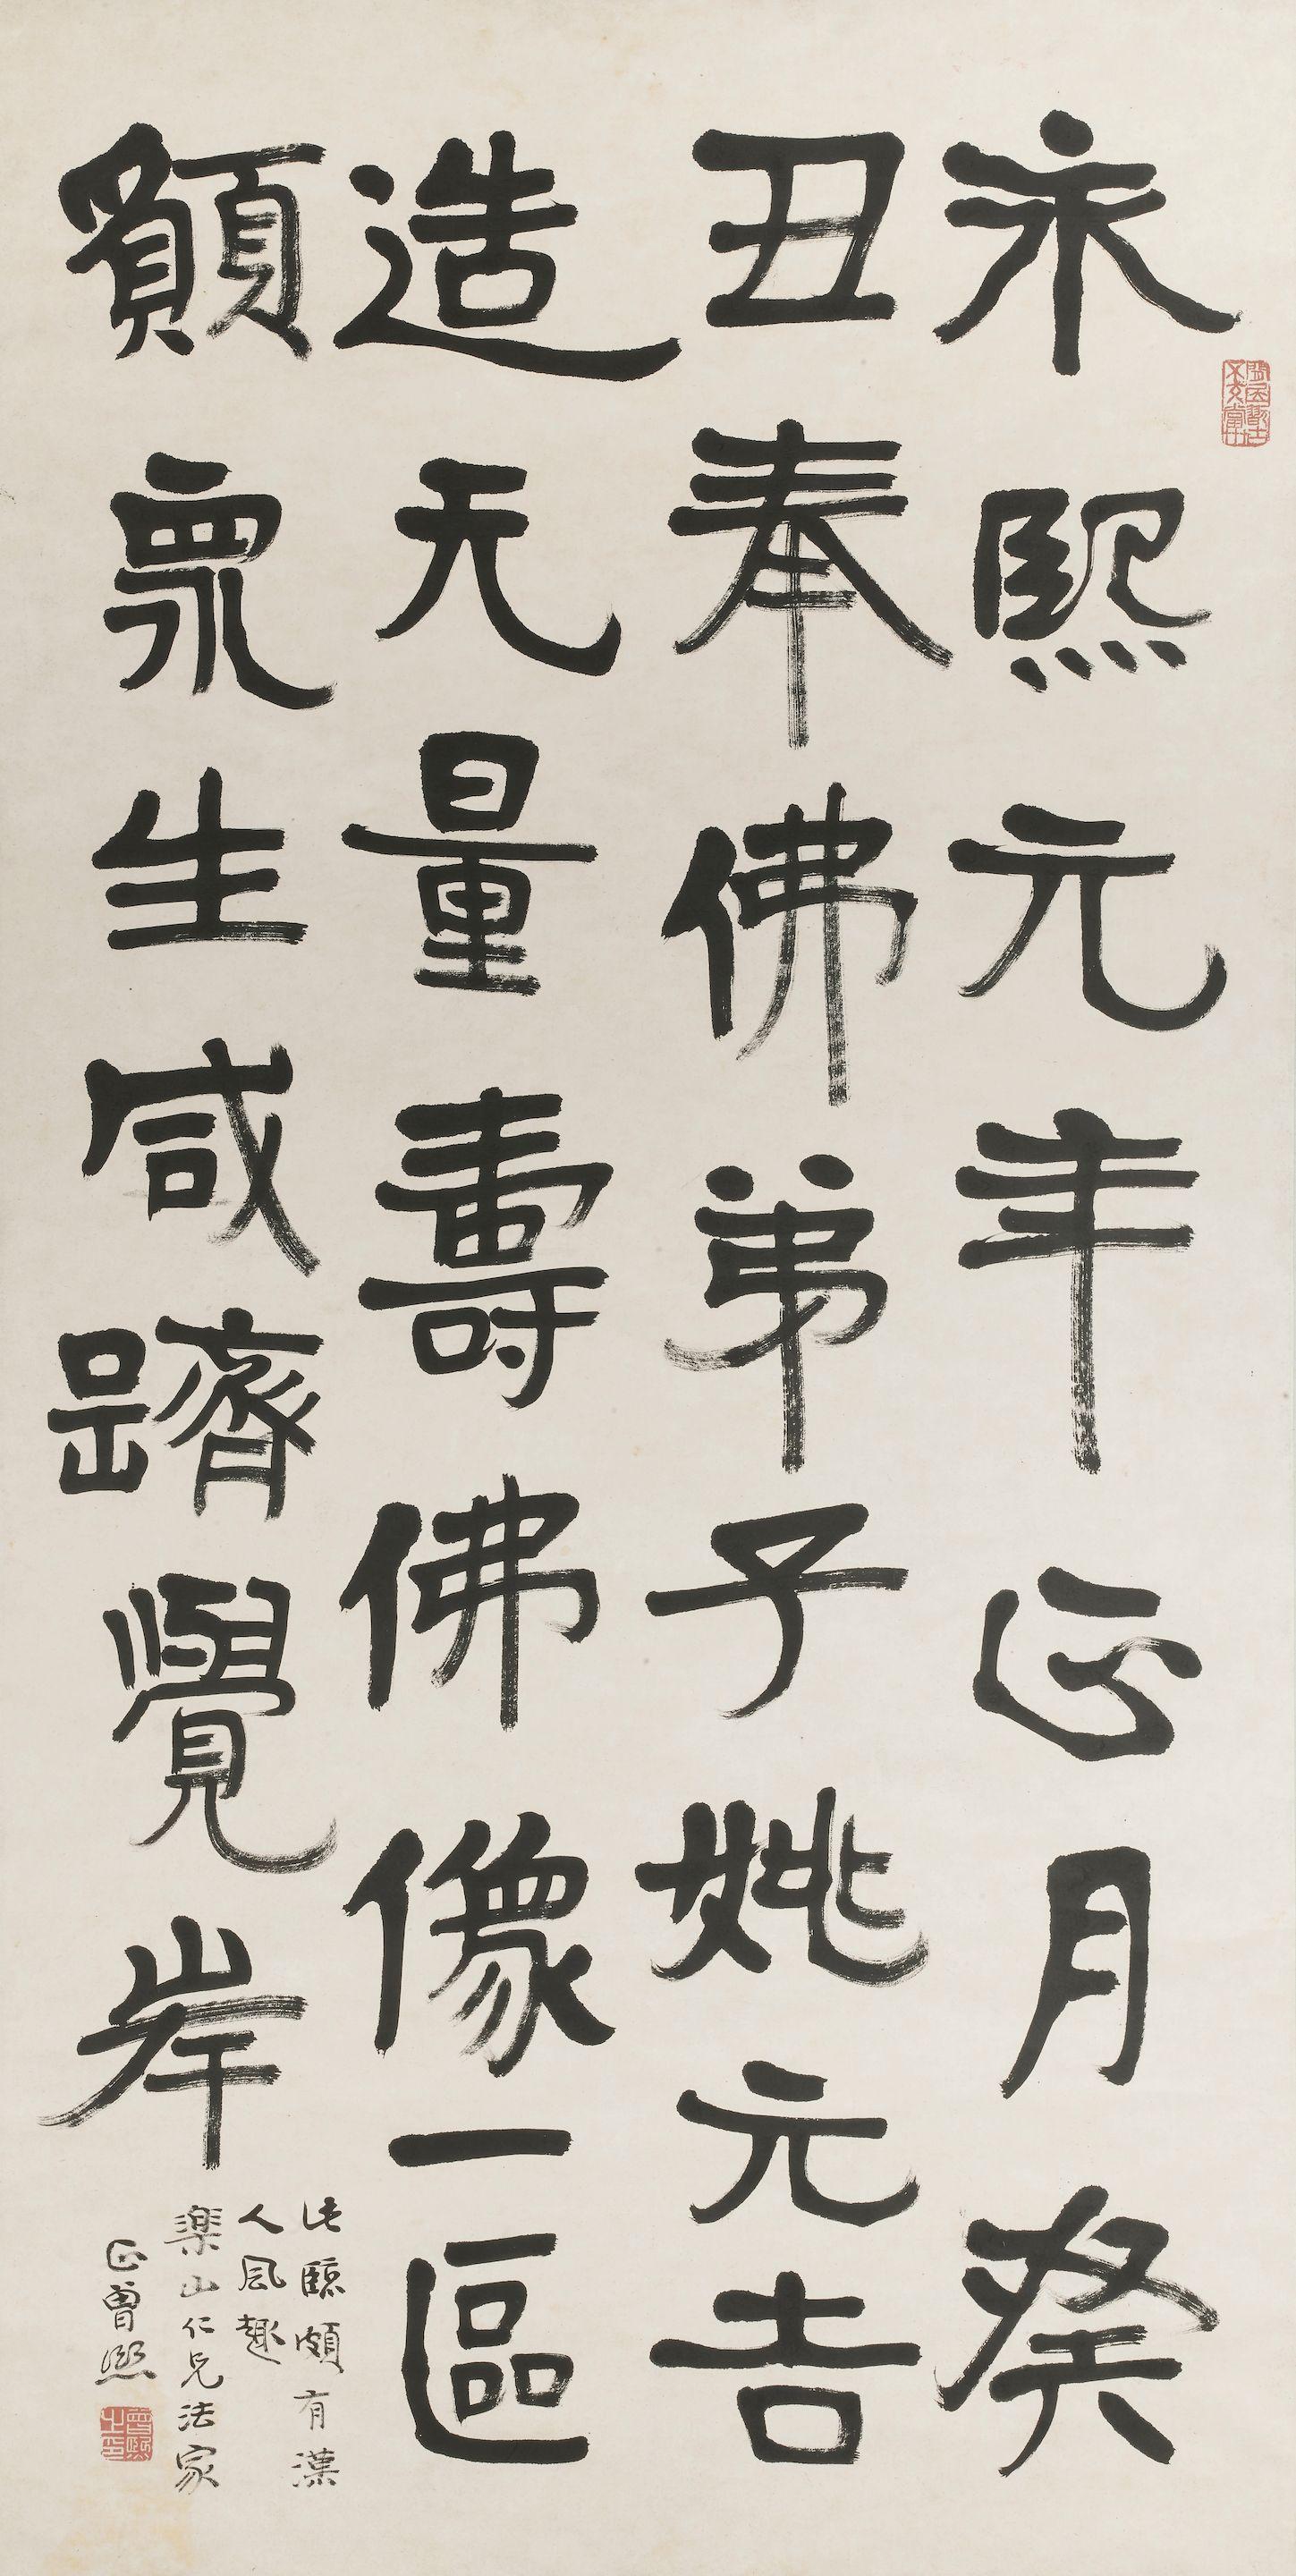 永熙元年正月癸
丑奉佛弟子姚元吉
造无量壽佛像一區
願衆生咸躋覺岸
此臨頗有漢
人風趣
樂山仁兄法家
正曾熙
曾熙之印